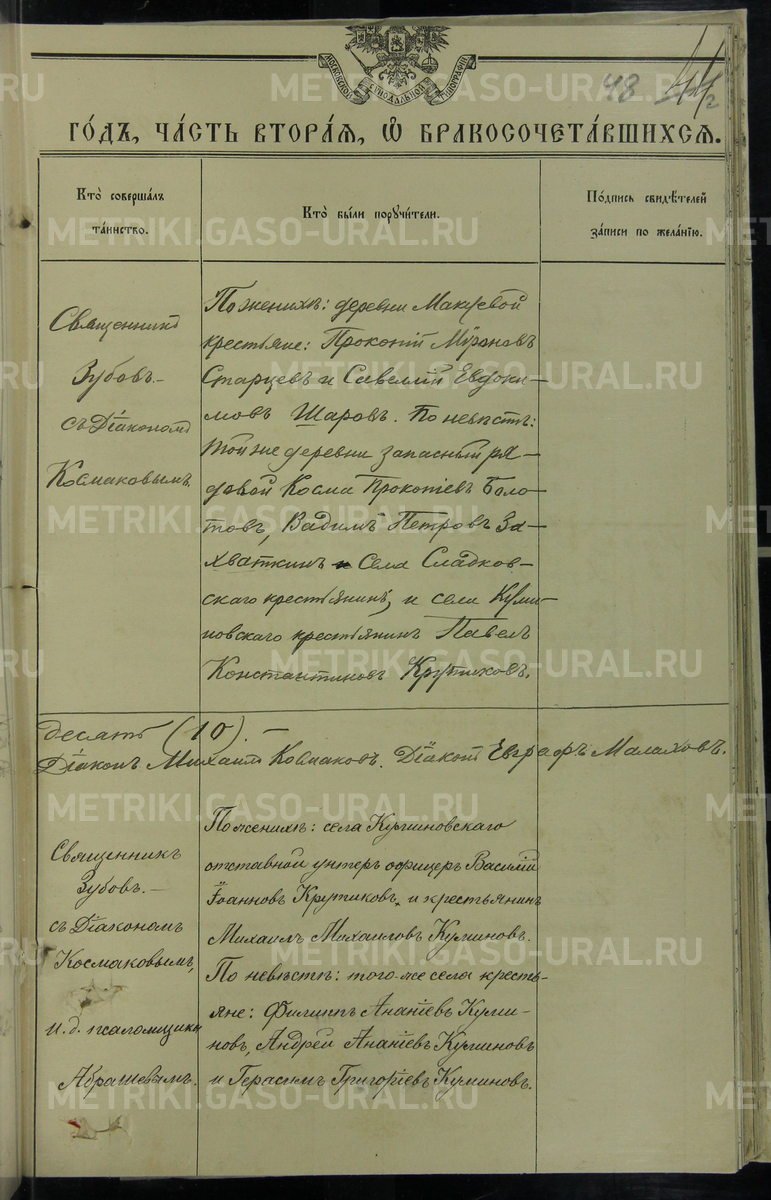 МОСКОВСКОЙ СѴНОДАЛЬНОЙ ТИПОГРАФІИ
48
ГОДЪ, ЧАСТЬ ВТОРАЯ, Ѡ БРАКОСОЧЕТАВШИХСЯ.
Кто совершалъ
таинство.
Кто были поручители.
Подпись свидѣтелей
записи по желанію.
Священникъ
Зубовъ.—
съ Діакономъ
Космаковымъ.
По женихѣ: деревни Макуевой
крестьяне: Прокопій Мѵроновъ
Старцевъ и Савелій Евдоки-
мовъ Шаровъ. По невѣстѣ:
той же деревни запасный ря-
довой Косма Прокопіевъ Боло-
товъ, Вадимъ Петровъ За-
хваткинъ села Сладков-
скаго крестьянинъ, и села Куми-
новскаго крестьянинъ Павелъ
Константиновъ Крутиковъ.
десять (10).—
Діаконъ Михаилъ Космаковъ. Діаконъ Евграфъ Малаховъ.
Священникъ
Зубовъ.—
съ Діакономъ
Космаковымъ,
и.д. псаломщика
Абрашевымъ.
По женихѣ: села Куминовскаго
отставной унтеръ офицеръ Василій
Іоанновъ Крутиковъ, и крестьянинъ
Михаилъ Михаиловъ Куминовъ.
По невѣстѣ: того же села кресть-
яне: Филиппъ Ананіевъ Куми-
новъ, Андрей Ананіевъ Куминовъ
и Герасимъ Григоріевъ Куминовъ.
METRIKI.GASO-URAL.RU